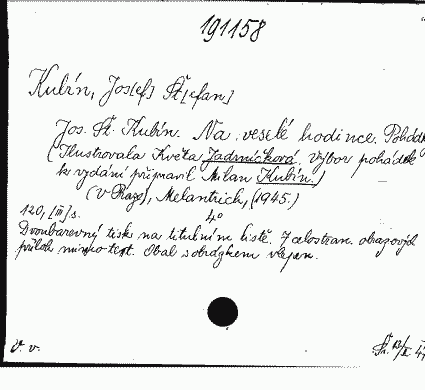 191158
Kubín, Jos[ef] Št[efan]
Jos. Št. Kubín. Na veselé hodince. Pohádk
(Ilustrovala Květa Jadrníčková. Výbor pohádek
k vydání připravil Milan Kubín.)
(V Praze), Melantrich, (1945.)
120, [III] s. 4°
Dvoubarevný tisk na titulním listě. 7 celostran. obrazových
příloh mimo text. Obal s obrázkem vlepen.
V. v.